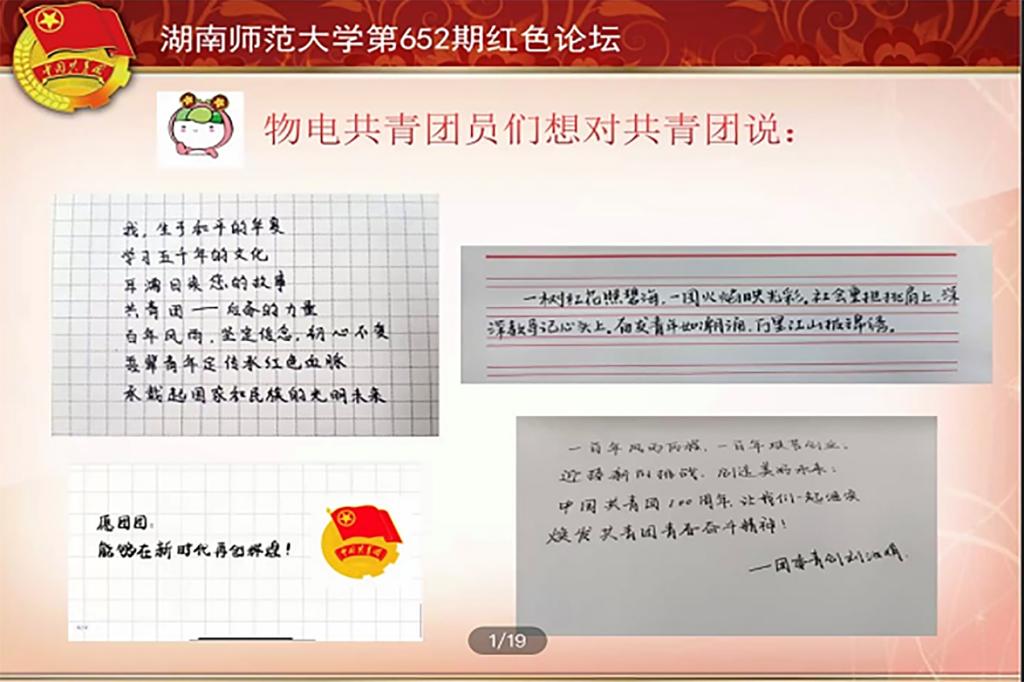 湖南师范大学第652期红色论坛
中国共青团
物电共青团员们想对共青团说：
我，生于和平的华夏
学习五千年的文化
耳濡目染您的故事
共青团——后备的力量
百年风雨，坚定信念，初心不变
吾辈青年定传承红色血脉
承载起国家和民族的光明未来
一树红花照碧海，一团火焰映光彩。社会重担挑肩上，深
深教导记心头上。奋发青年如潮涌，万里江山披锦绣。
愿团团：
能够在新时代再创辉煌！
中国共青团
一百年风雨历程，一百年艰苦创业。
迎接新的挑战，创造美好未来；
中国共青团100周年，让我们一起
焕发共青团青春奋斗精神！
1/19